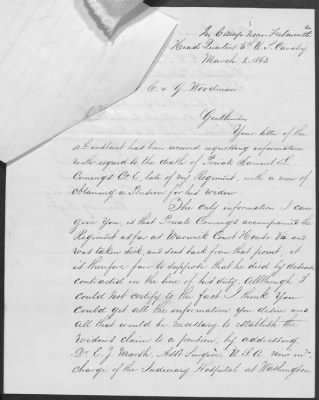 In Camp near Falmouth Va
Head Quarters 5th U.S. Cavalry
March 3, 1863
C & G Woodman
Gentlemen
Your letter of the
nd instant has been received requesting information
with regard to the death of Private Samuel L
Conings Co E, late of my Regiment, with a view of
obtaining a Pension for his widow.
The only information I can
give you, is that Private Conings accompanied the
Regiment as far as Warwick Court House Va and
was taken sick, and sent back from that point, it
is therefore fair to suppose that he died by disease
contracted in the line of his duty, although I
could not certify to the fact. I think you
could get all the information you desire and
all that would be necessary to establish the
widows claim to a pension, by addressing
Dr. E. J. Marsh, Asst Surgeon, U.S.A. now in
charge of the Judiciary Hospital at Washington